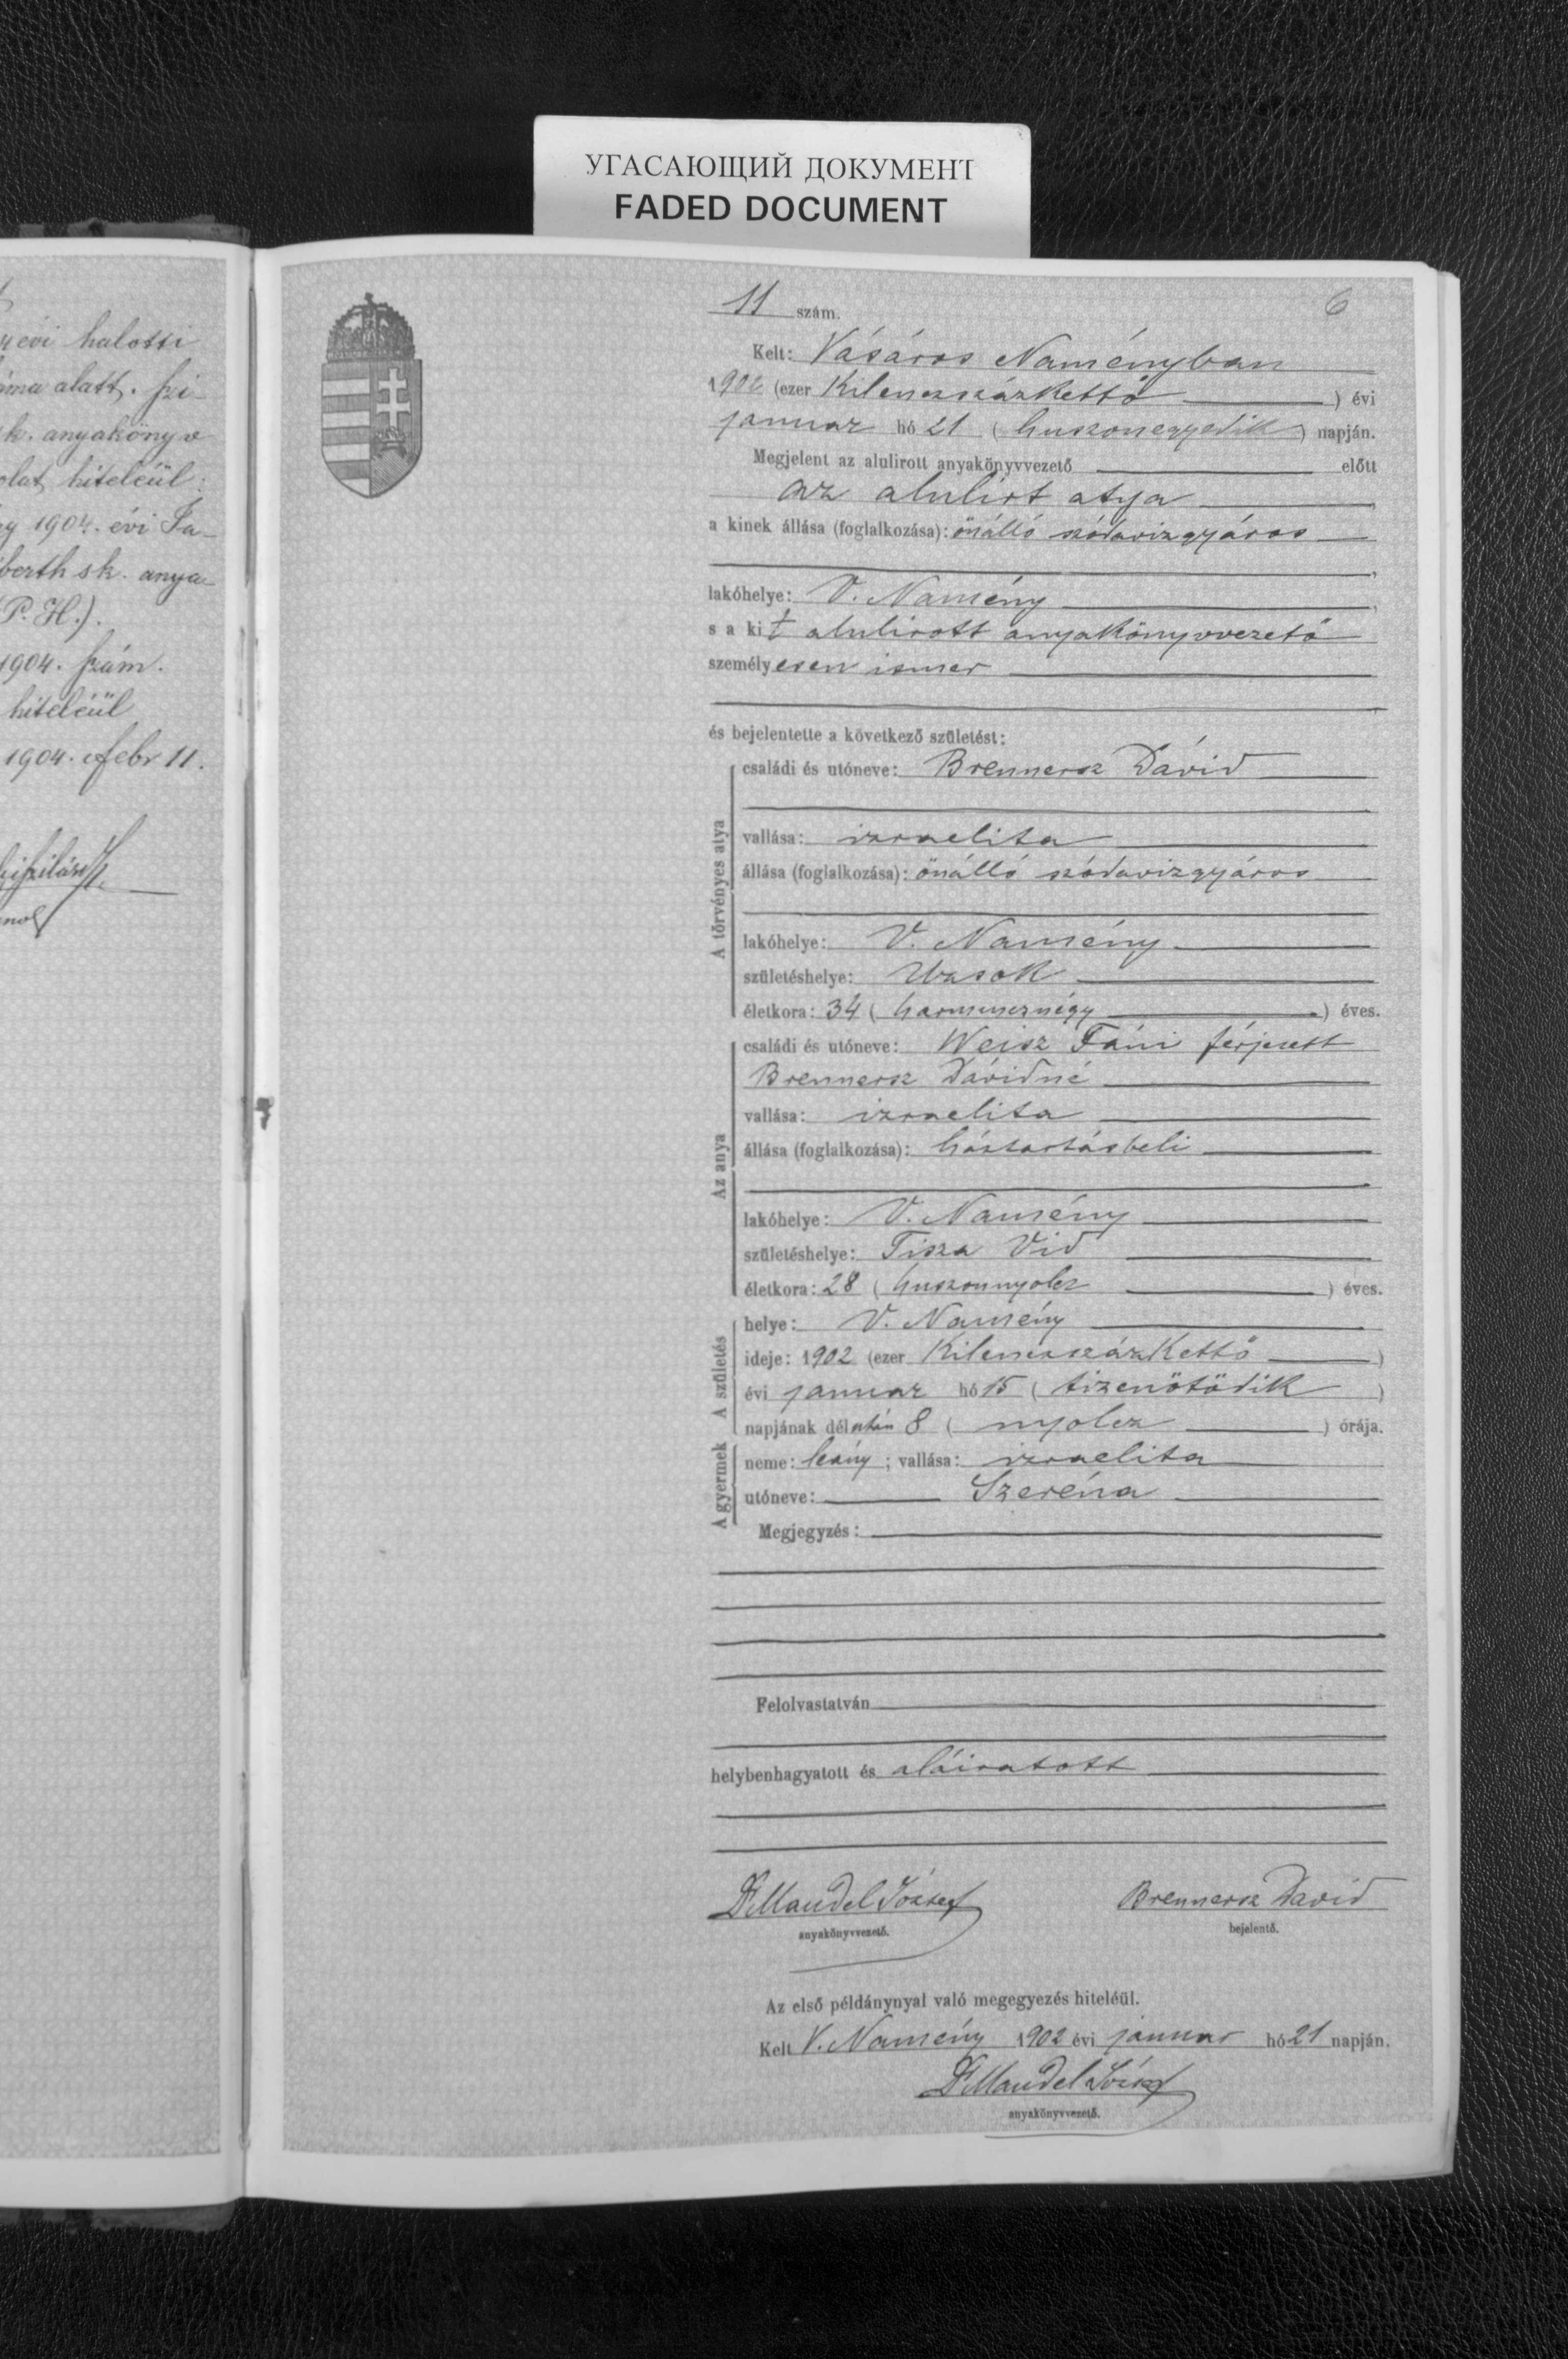 УГАСАЮЩИЙ ДОКУМЕНТ
FADED DOCUMENT
évi halotti
alatt.
k. anyakönyv
hiteléül:
1904. évi
sk. anya-
(P. H.).
1904. szám.
hiteléül
1904. febr 11.
11 szám.
6
Kelt: Vásáros Naményban
1902 (ezer kilenczszázkettő ) évi
január hó 21 (huszonegyedik) napján.
Megjelent az alulirott anyakönyvvezető előtt
az alulirt atya
a kinek állása (foglalkozása): önálló szódavizgyáros
lakóhelye: V. Namény
s a kit alulirott anyakönyvvezető
személyesen ismer
és bejelentette a következő születést:
A törvényes atya
családi és utóneve: Brennersz Dávid
vallása: izraelita
állása (foglalkozása): önálló szódavizgyáros
lakóhelye: V. Namény
születéshelye: Uzsok
életkora: 34 (harmincznégy ) éves.
Az anya
családi és utóneve: Weisz Fáni férjezett
Brennersz Dávidné
vallása: izraelita
állása (foglalkozása): háztartásbeli
lakóhelye: V. Namény
születéshelye: Tisza Vid
életkora: 28 (huszonnyolcz ) éves.
A születés
helye: V. Namény
ideje: 1902 (ezer kilenczszázkettő )
évi január hó 15 (tizenötödik )
napjának délután 8 ( nyolcz ) órája.
A gyermek
neme: leány; vallása: izraelita
utóneve: Szeréna
Megjegyzés:
Felolvastatván
helybenhagyatott és aláiratott
Dr Mandel József
anyakönyvvezető.
Brennersz David
bejelentő.
Az első példánynyal való megegyezés hiteléül.
Kelt V. Namény 1902 évi január hó 21 napján.
Dr Mandel József
anyakönyvvezető.